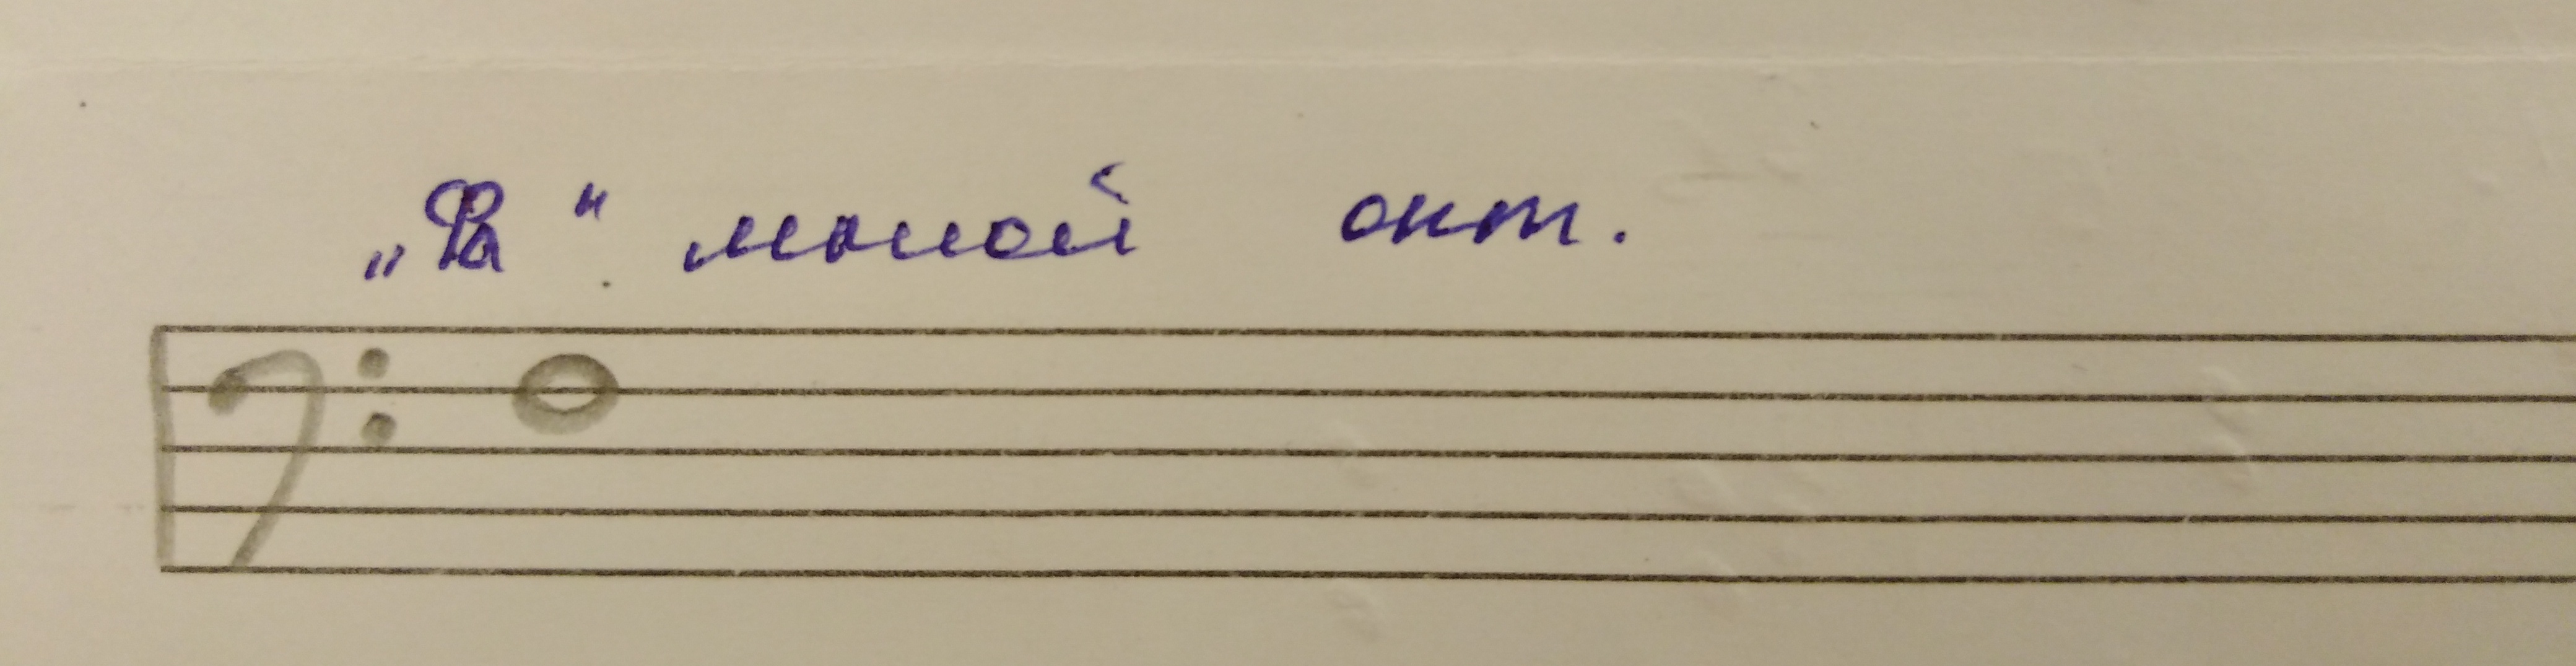 „Фа“ малой окт.